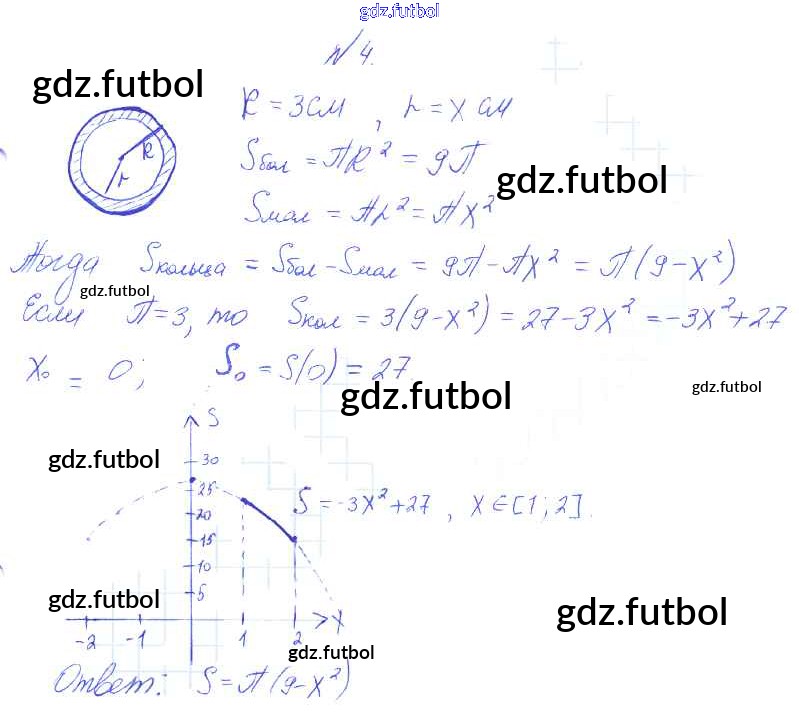 gdz.futbol
№ 4.
gdz.futbol
R = 3 см , r = x см
Sбол = ПR² = 9П
gdz.futbol
R
r
Sмал = Пr² = Пx²
Тогда Sкольца = Sбол - Sмал = 9П - Пx² = П(9-x²)
gdz.futbol
Если П=3, то Sкол = 3(9-x²) = 27-3x² = -3x²+27
x₀ = 0; S₀ = S(0) = 27
gdz.futbol
gdz.futbol
S
gdz.futbol
30
25
S = -3x²+27 , x ∈ [1; 2].
20
15
10
gdz.futbol
5
gdz.futbol
-2 -1 1 2 x
gdz.futbol
Ответ: S = П(9-x²)